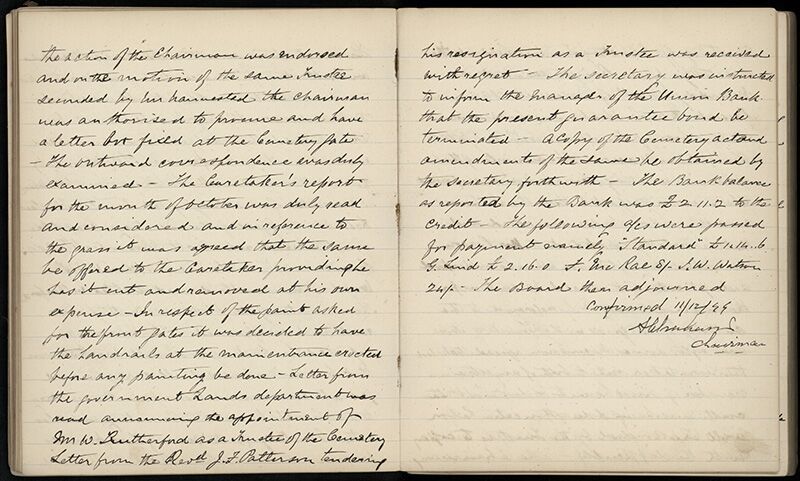 the action of the Chairman was endorsed
and on the motion of the same Trustee
seconded by the Chairman
was authorised to procure and have
a letter box fixed at the Cemetery gate
- The outward correspondence was duly
examined - The Caretaker's report
for the month of October was duly read
and considered and in reference to
the grass it was agreed that the same
be offered to the Caretaker providing he
has it cut and removed at his own
expense - In respect of the paint asked
for the front gates it was decided to have
the handrails at the main entrance erected
before any painting be done - Letter from
the government Lands department was
read announcing the appointment of
Mr W. Rutherford as a Trustee of the Cemetery
Letter from the Revd J. F. Patterson tendering
his resignation as a Trustee was received
with regret - The secretary was instructed
to inform the manager of the Union Bank
that the present guarantee bond be
terminated - a copy of the Cemetery act and
amendments of the same be obtained by
the secretary forthwith - The Bank balance
as reported by the Bank was £2.11.2 to the
credit - The following a/cs were passed
for payment namely "Standard" £1.14.6
G. Lind £2.16.0 J. McRae 8/- J. W. Watson
24/- The Board then adjourned
Confirmed 11/12/99
Chairman